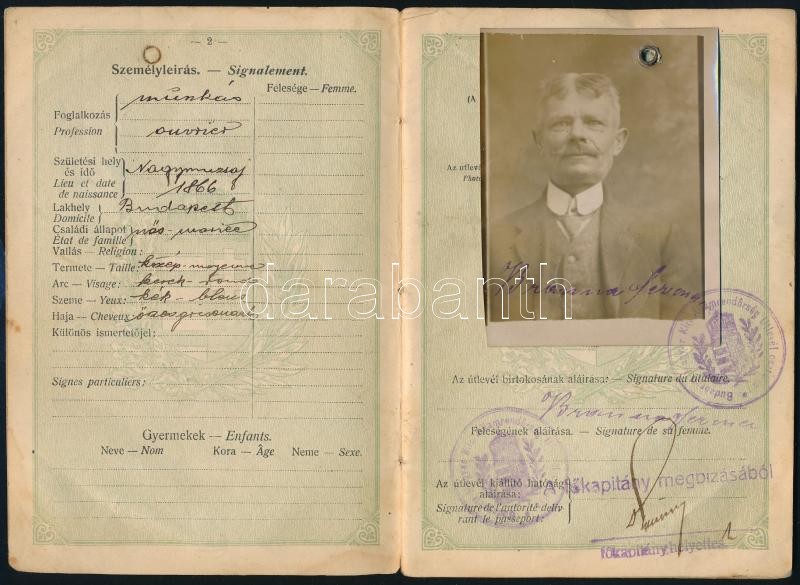 — 2 —
Személyleírás. — Signalement.
Felesége — Femme.
munkás
Foglalkozás
Profession
ouvrier
Születési hely
és idő
Lieu et date
de naissance
1866
Lakhely
Domicile
Budapest
Családi állapot
État de famille
nős - mariée
Vallás — Religion :
Termete — Taille: közép - moyenne
Arc — Visage: kerek - ronde
Szeme — Yeux: kék - bleu
Haja — Cheveux
Különös ismertetőjel:
Signes particuliers:
Gyermekek — Enfants.
Neve — Nom Kora — Âge Neme — Sexe.
(A
Az útlevé
Ferenc
darabanth
Az útlevél birtokosának aláírása: — Signature du titulaire.
Ferenc
Feleségének aláírása. — Signature de sa femme.
Az útlevél kiállító hatóság
aláírása:
Signature de l'autorité déliv
rant le passeport:
A főkapitány megbízásából
főkapitányhelyettes